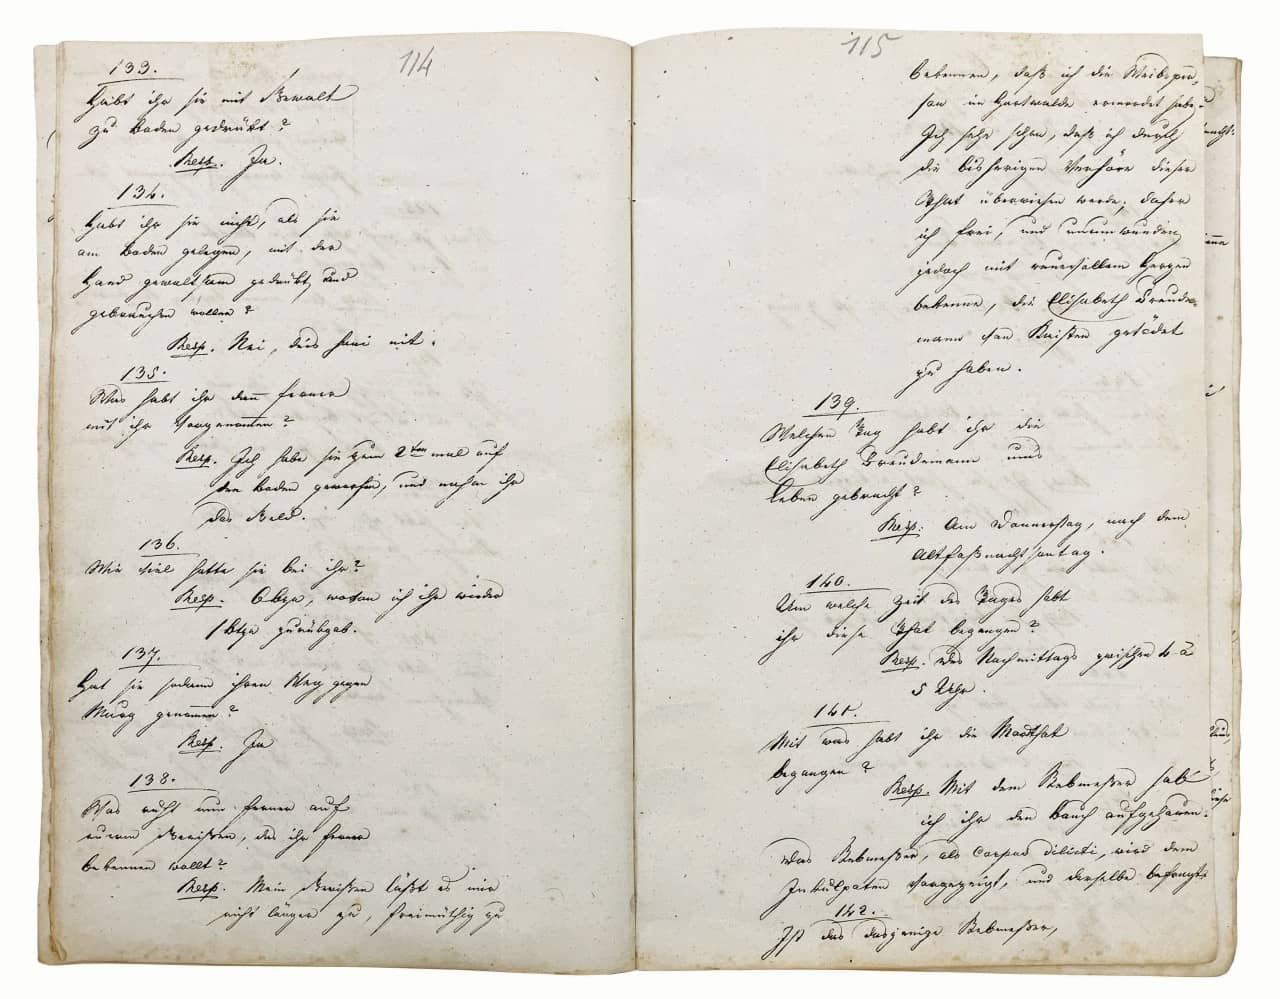 114
133.
Habt ihr sie mit Gewalt
zu Boden gedrükt?
Resp. Ja.
134.
Habt ihr sie nicht, als sie
am Boden gelegen, mit der
Hand gewaltsam gedrükt, und
gebrauchen wollen?
Resp. Nei, dies hani nit.
135.
Was habt ihr denn ferner
mit ihr vorgenomen?
Resp. Ich habe sie zum 2ten mal auf
den Boden geworfen, und nahm ihr
das Geld.
136.
Wie viel hatte sie bei ihr?
Resp. 6 btze, wovon ich ihr wieder
1 btze zurükgab.
137.
Hat sie sodann ihren Weg gegen
Murg genomen?
Resp. Ja
138.
Was ruht nun ferner auf
eurem Gewißen, das ihr ferner
bekennen wollt?
Resp. Mein Gewißen läßt es mir
nicht länger zu, freimüthig zu
115
bekennen, daß ich die Weibsper,
son im Hartwalde ermordet habe.
Ich sehe schon, daß ich durch
die bisherigen Verhöre dieser
That überwiesen werde; daher
ich frei, und unumwunden,
jedoch mit reuevollem Herzen
bekenne, die Elisabeth Freude
mann von Kaisten getödet
zu haben.
139.
Welchen Tag habt ihr die
Elisabeth Freudemann ums
Leben gebracht?
Resp. Am Donnerstag, nach dem
Altfaßnachtsontag.
140.
Um welche Zeit des Tages habt
ihr diese That begangen?
Resp. Des Nachmittags zwischen 4 à
5 Uhr.
141.
Mit was habt ihr die Mordthat
begangen?
Resp. Mit dem Rebmeßer hab
ich ihr den Bauch aufgehauen.
Das Rebmeßer, als corpus dilicti, wird dem
Inkulpaten vorgezeigt, und derselbe befragt:
142.
Ist das dasjenige Rebmeßer,